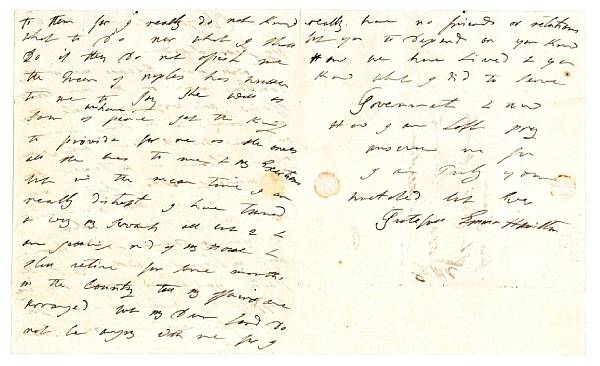 to them for I really do not know
what to Do nor what I shall
Do if they Do not assist me
the Queen of naples has written
to me to say she will as
soon as peace inform get the King
to provide for me as she owes
all she has to me & my Exertions
but in the mean time I am
really distrest I have turned
a way my servants all but 2 &
am getting rid of my House &
shall retire for some months
in the Country till my affairs are
arranged but my Dear Lord Do
not be angry with me for I
really have no friends or relations
but you to Depend on you know
How we have Lived & you
know what I did to serve
Government & now
How I am Left pray
answer me for
I am Truly your
but Ever
Grateful Emma Hamilton